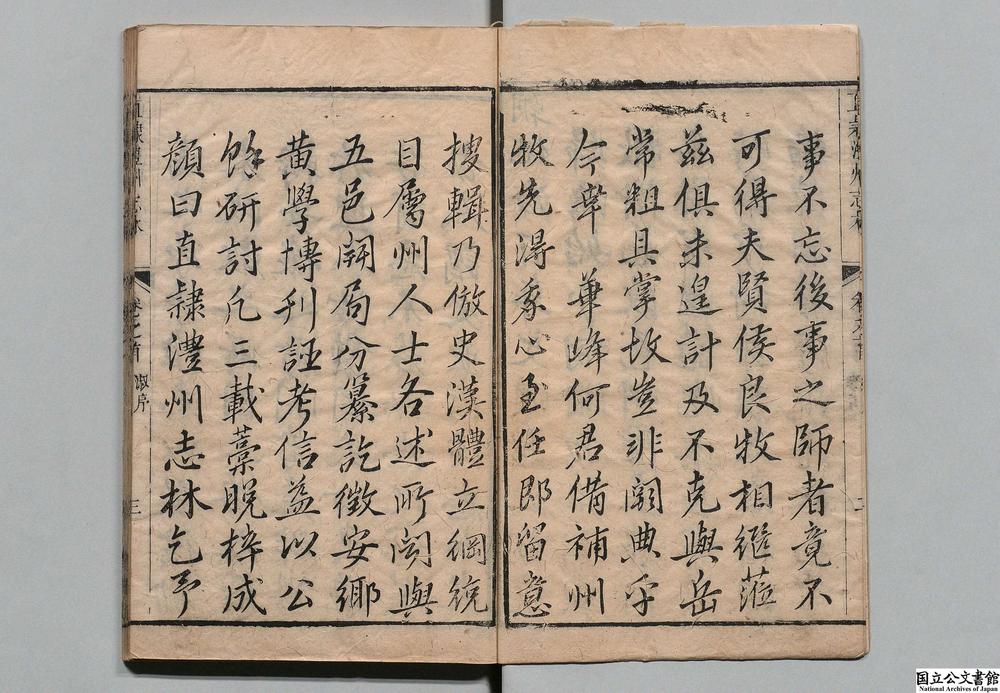 直隸澧州志林 卷之首 二
事不忘後事之師者竟不
可得夫賢侯良牧相繼蒞
茲俱未遑計及不克與岳
常粗具掌故豈非闕典乎
今 華峰何君借補州
牧先淂我心至任即留意
搜輯乃倣史漢體立綱統
目屬州人士各述所聞與
五邑開局分纂訖徵安鄉
黃學博刊誣考信益以公
餘研討凡三載藁脫梓成
顏曰直隷澧州志林乞予
直隸澧州志林 卷之首 序 三
国立公文書館
National Archives of Japan